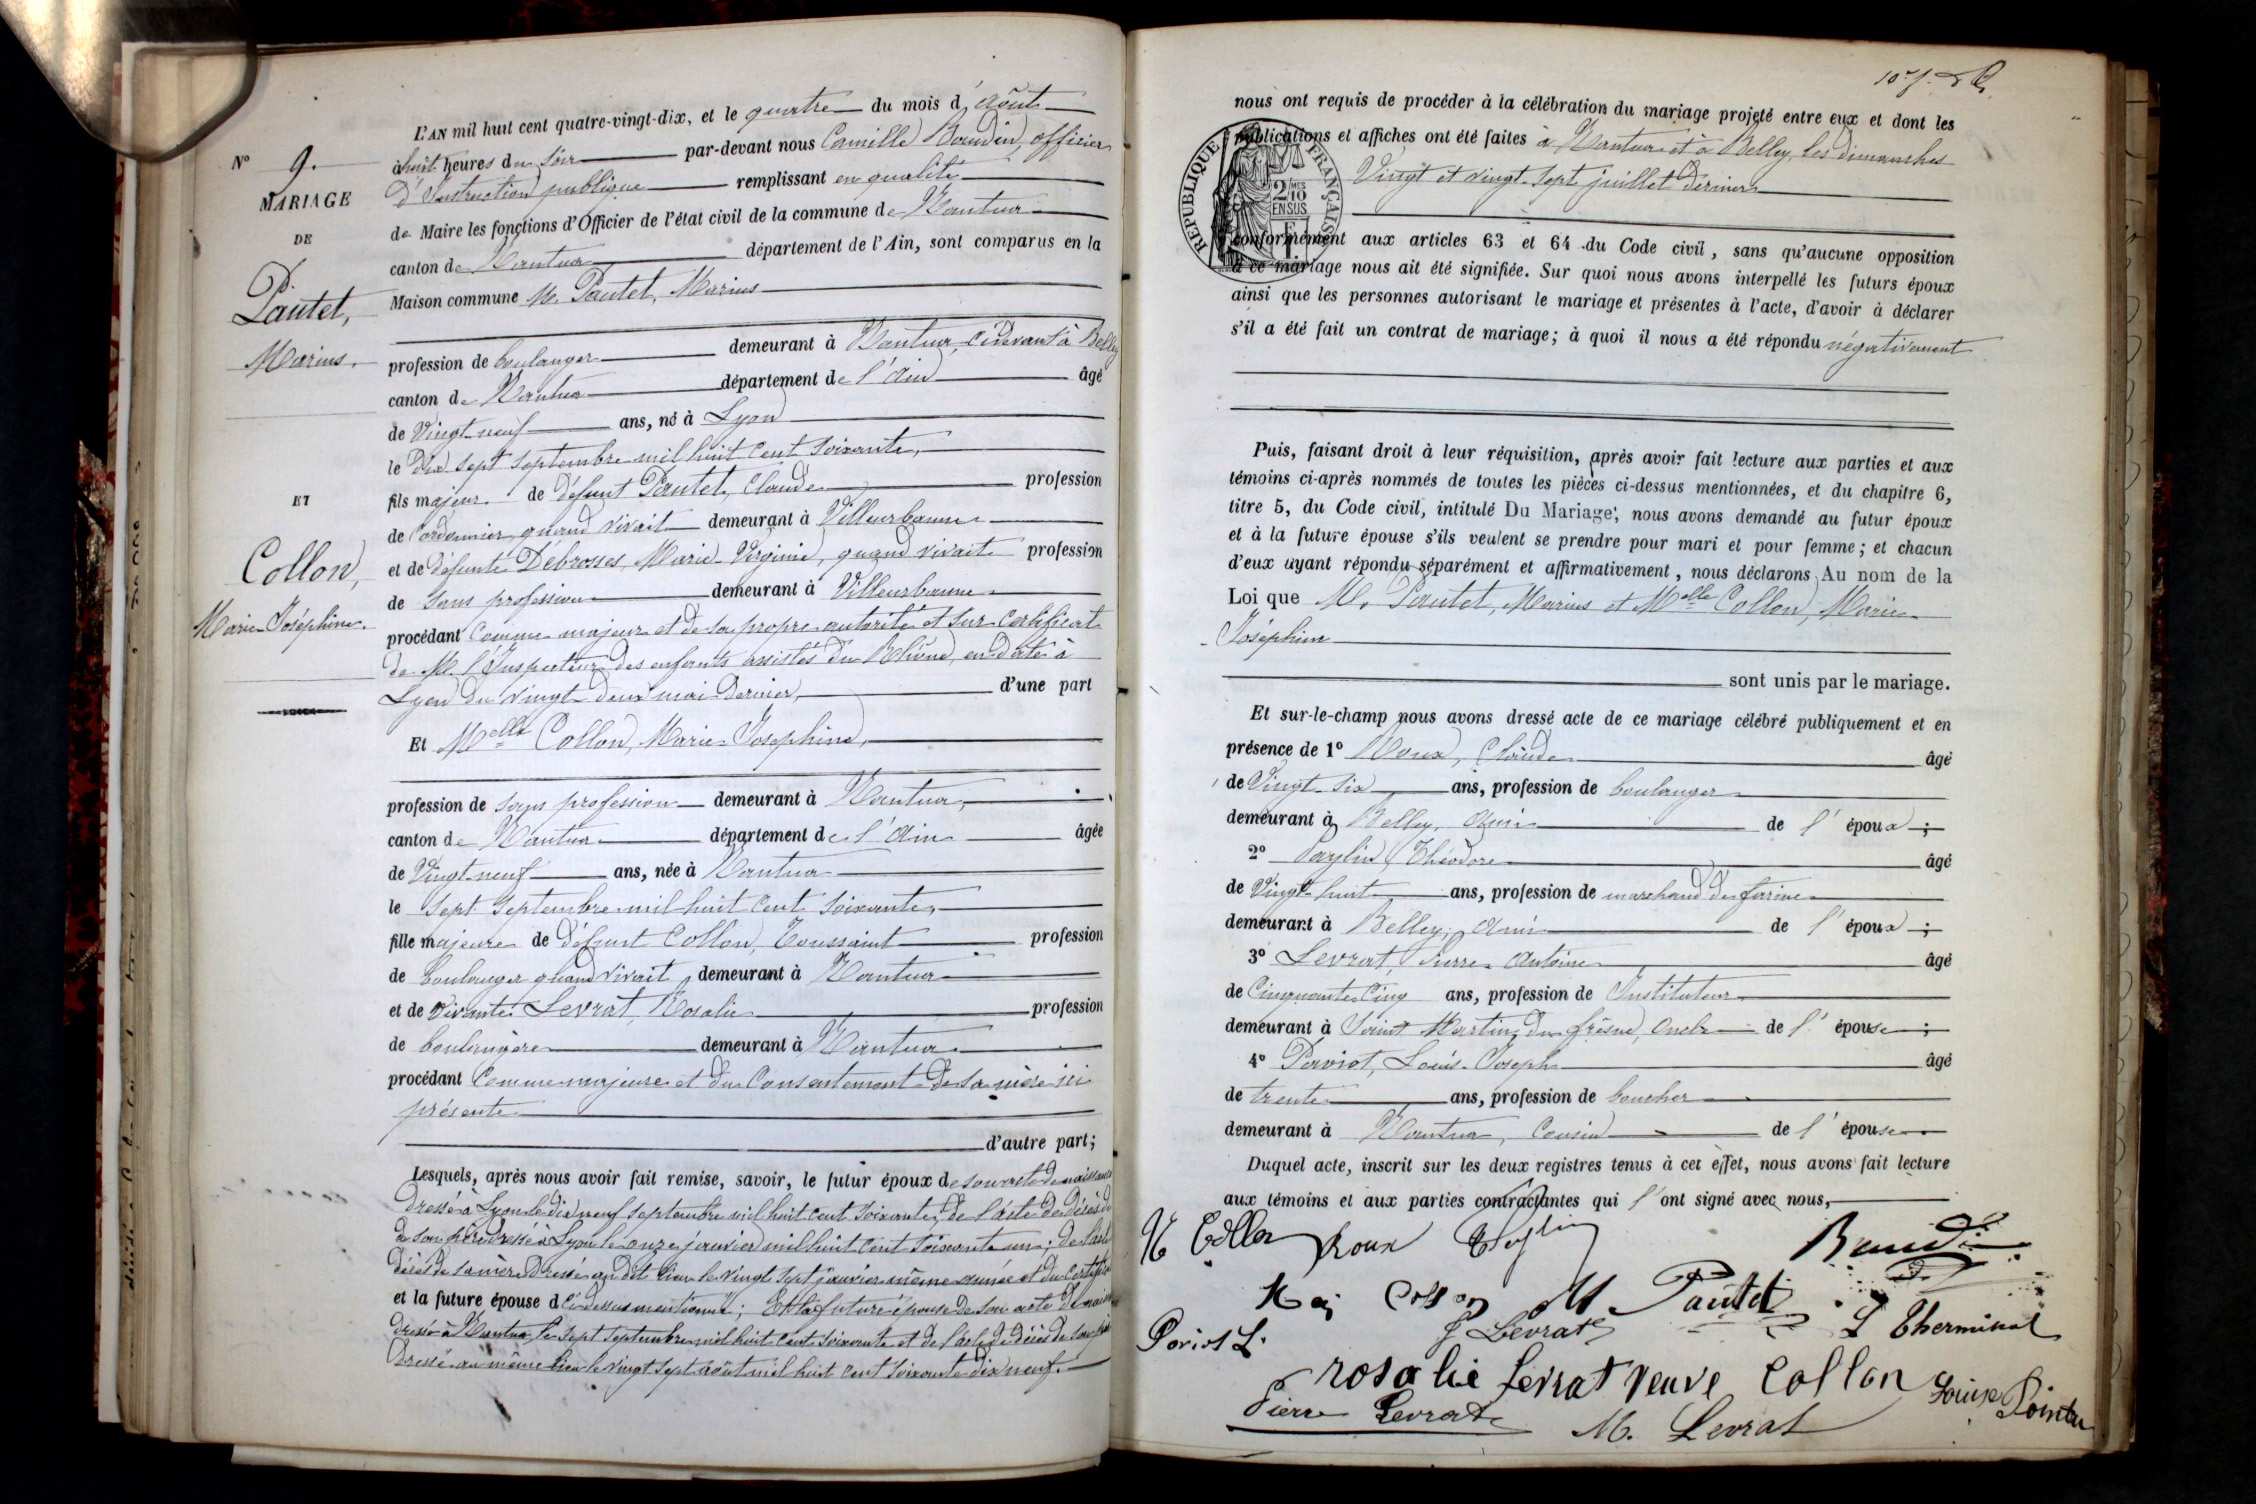 N° 9.
MARIAGE
DE
Pautet,
Marius.
ET
Collon,
Marie-Joséphine.
L'AN mil huit cent quatre-vingt-dix, et le quatre du mois d'Août
à huit heures du soir par-devant nous Camille Baudin, officier
d'Instruction publique remplissant en qualité
de Maire les fonctions d'Officier de l'état civil de la commune de Nantua
canton de Nantua département de l'Ain, sont comparus en la
Maison commune M. Pautet, Marius
profession de boulanger demeurant à Nantua, ci-devant à Belley
canton de Nantua département de l'Ain âgé
de Vingt-neuf ans, né à Lyon
le dix sept septembre mil huit cent soixante,
fils majeur de défunt Pautet, Claude profession
de Cordonnier quand vivait demeurant à Villeurbanne
et de défunte Débrosses, Marie-Virginie, quand vivait profession
de sans profession demeurant à Villeurbanne
procédant comme majeur et de sa propre autorité et sur certificat
de M. l'Inspecteur des enfants assistés du Rhône, en date à
Lyon du vingt-deux mai dernier, d'une part
Et Melle Collon, Marie-Joséphine,
profession de sans profession demeurant à Nantua,
canton de Nantua département de l'Ain âgée
de Vingt-neuf ans, née à Nantua
le sept septembre mil huit cent soixante,
fille majeure de défunt Collon, Toussaint profession
de boulanger quand vivait, demeurant à Nantua
et de vivante Levrat, Rosalie profession
de boulangère demeurant à Nantua
procédant comme majeure et du consentement de sa mère ici
présente
d'autre part;
Lesquels, après nous avoir fait remise, savoir, le futur époux de son acte de naissance
dressé à Lyon le dix neuf septembre mil huit cent soixante, de l'acte de décès
de son père dressé à Lyon le onze janvier mil huit cent soixante un; de l'acte
décès de sa mère dressé au dit lieu le vingt sept janvier même année et du certificat
et la future épouse d ci-dessus mentionné; Et la future épouse de son acte de naissance
dressé à Nantua, le sept septembre mil huit cent soixante et de l'acte de décès de son père
dressé au même lieu le vingt sept août mil huit cent soixante dix neuf.
nous ont requis de procéder à la célébration du mariage projeté entre eux et dont les
publications et affiches ont été faites à Nantua et à Belley les dimanches
Vingt et vingt-sept juillet derniers
RÉPUBLIQUE FRANÇAISE
2/10MES
EN SUS
conformément aux articles 63 et 64 du Code civil, sans qu'aucune opposition
à ce mariage nous ait été signifiée. Sur quoi nous avons interpellé les futurs époux
ainsi que les personnes autorisant le mariage et présentes à l'acte, d'avoir à déclarer
s'il a été fait un contrat de mariage; à quoi il nous a été répondu négativement
Puis, faisant droit à leur réquisition, après avoir fait lecture aux parties et aux
témoins ci-après nommés de toutes les pièces ci-dessus mentionnées, et du chapitre 6,
titre 5, du Code civil, intitulé Du Mariage, nous avons demandé au futur époux
et à la future épouse s'ils veulent se prendre pour mari et pour femme; et chacun
d'eux ayant répondu séparément et affirmativement, nous déclarons Au nom de la
Loi que M. Pautet, Marius et Melle Collon, Marie
Joséphine
sont unis par le mariage.
Et sur-le-champ nous avons dressé acte de ce mariage célébré publiquement et en
présence de 1° Roux, Claude âgé
de Vingt-six ans, profession de boulanger
demeurant à Belley, ami de l'époux;
2° Théodore âgé
de Vingt-huit ans, profession de marchand de farine
demeurant à Belley, ami de l'époux;
3° Levrat, Pierre-Antoine âgé
de Cinquante-cinq ans, profession de Instituteur
demeurant à Saint Martin du frêsne, oncle de l'épouse;
4° Perviot, Louis-Joseph âgé
de trente ans, profession de boucher
demeurant à Nantua, cousin de l'épouse
Duquel acte, inscrit sur les deux registres tenus à cet effet, nous avons fait lecture
aux témoins et aux parties contractantes qui l'ont signé avec nous,
Collon Roux Baudin
Collon M. Pautet
J Levrat L Therminal
rosalie levrat veuve Collon
Pierre Levrat M. Levrat Louise Pointu